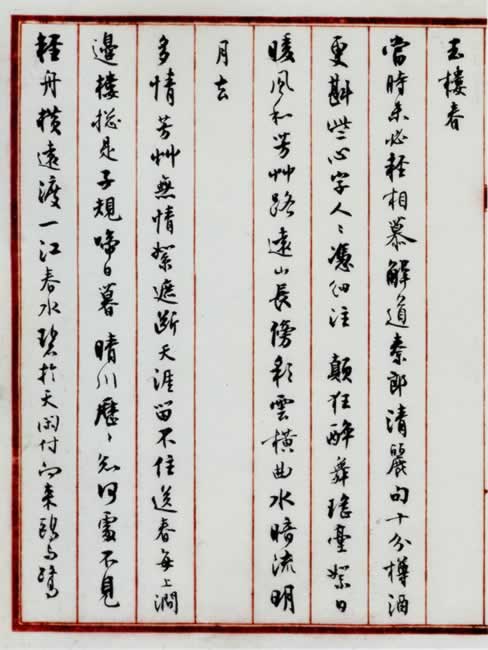 玉樓春
當時未必輕相慕 解道秦郎清麗句 十分樽酒
更斟些 心字人〻憑細注 顛狂醉舞瑤臺絮 日
暖風和芳艸路 遠山長傍彩雲橫 曲水暗流明
月去
多情芳艸無情絮 遮斷天涯留不住 送春每上澗
邊樓 總是子規啼日暮 晴川歷〻知何處 不見
輕舟橫遠渡 一江春水碧於天 閑付向來鷗与鷺